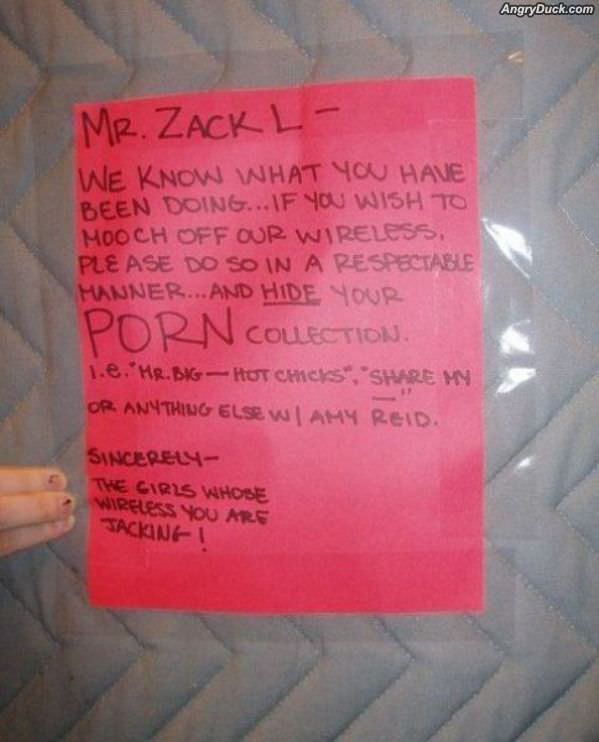 AngryDuck.com
MR. ZACK L -
WE KNOW WHAT YOU HAVE
BEEN DOING...IF YOU WISH TO
MOOCH OFF OUR WIRELESS,
PLEASE DO SO IN A RESPECTABLE
MANNER...AND HIDE YOUR
PORN COLLECTION.
i.e. "MR. BIG — HOT CHICKS", "SHARE MY
—"
OR ANYTHING ELSE W/ AMY REID.
SINCERELY-
THE GIRLS WHOSE
WIRELESS YOU ARE
JACKING!